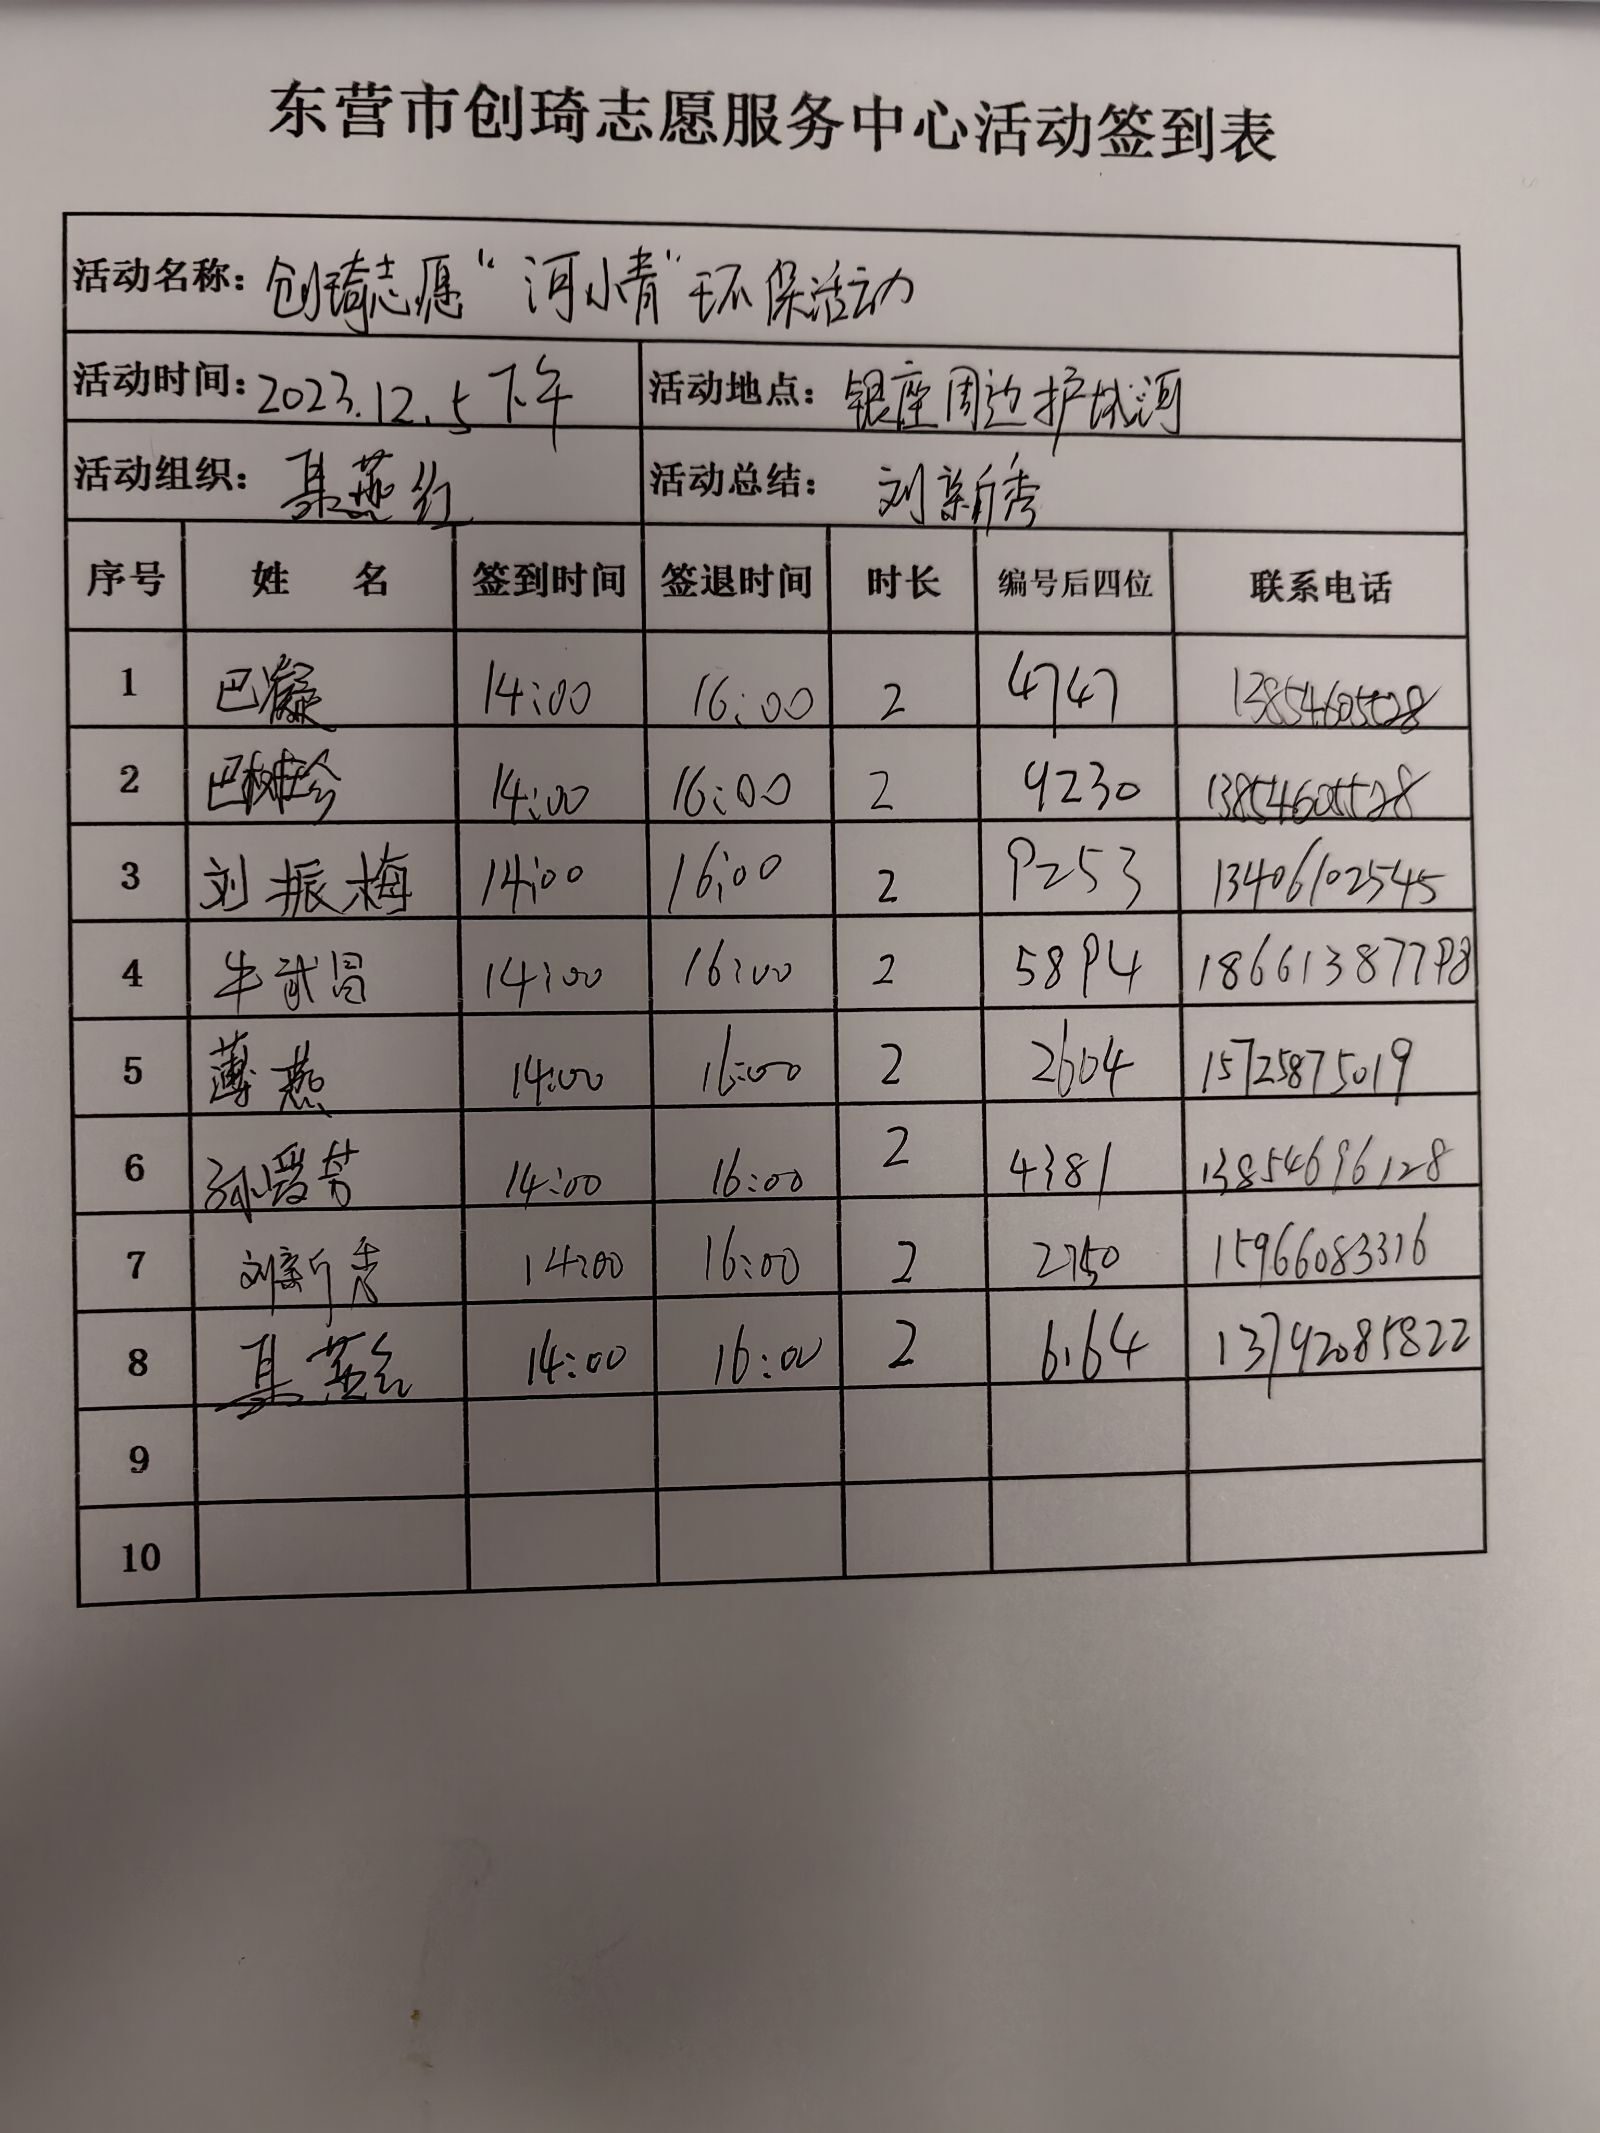 东营市创琦志愿服务中心活动签到表
活动名称：创琦志愿“河小青”环保活动
活动时间：2023.12.5下午 活动地点：银座周边护城河
活动组织：燕红 活动总结：刘新秀
序号 姓 名 签到时间 签退时间 时长 编号后四位 联系电话
1 巴凝 14:00 16:00 2 4747 13854605528
2 巴 14:00 16:00 2 9230 13854605528
3 刘振梅 14:00 16:00 2 9253 13406102545
4 牛武昌 14:00 16:00 2 5894 18661387798
5 薄燕 14:00 16:00 2 2604 15725875019
6 孙爱芳 14:00 16:00 2 4381 13854696128
7 刘新秀 14:00 16:00 2 2750 15966083316
8 燕红 14:00 16:00 2 6164 13792085822
9
10